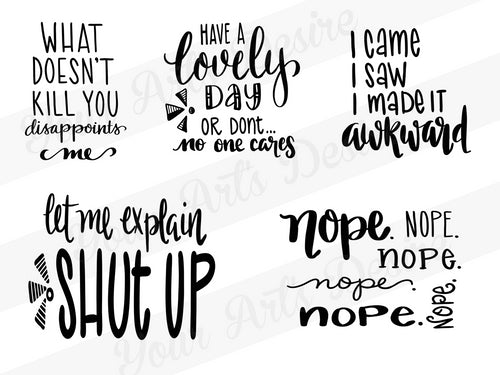 WHAT
DOESN'T
KILL YOU
disappoints
me
HAVE A
lovely
DAY
OR DONT...
no one cares
I CAME
I SAW
I MADE IT
awkward
let me explain
SHUT UP
nope. NOPE.
nope.
nope.
nope.
NOPE.
Your Art's Desire
Your Art's Desire